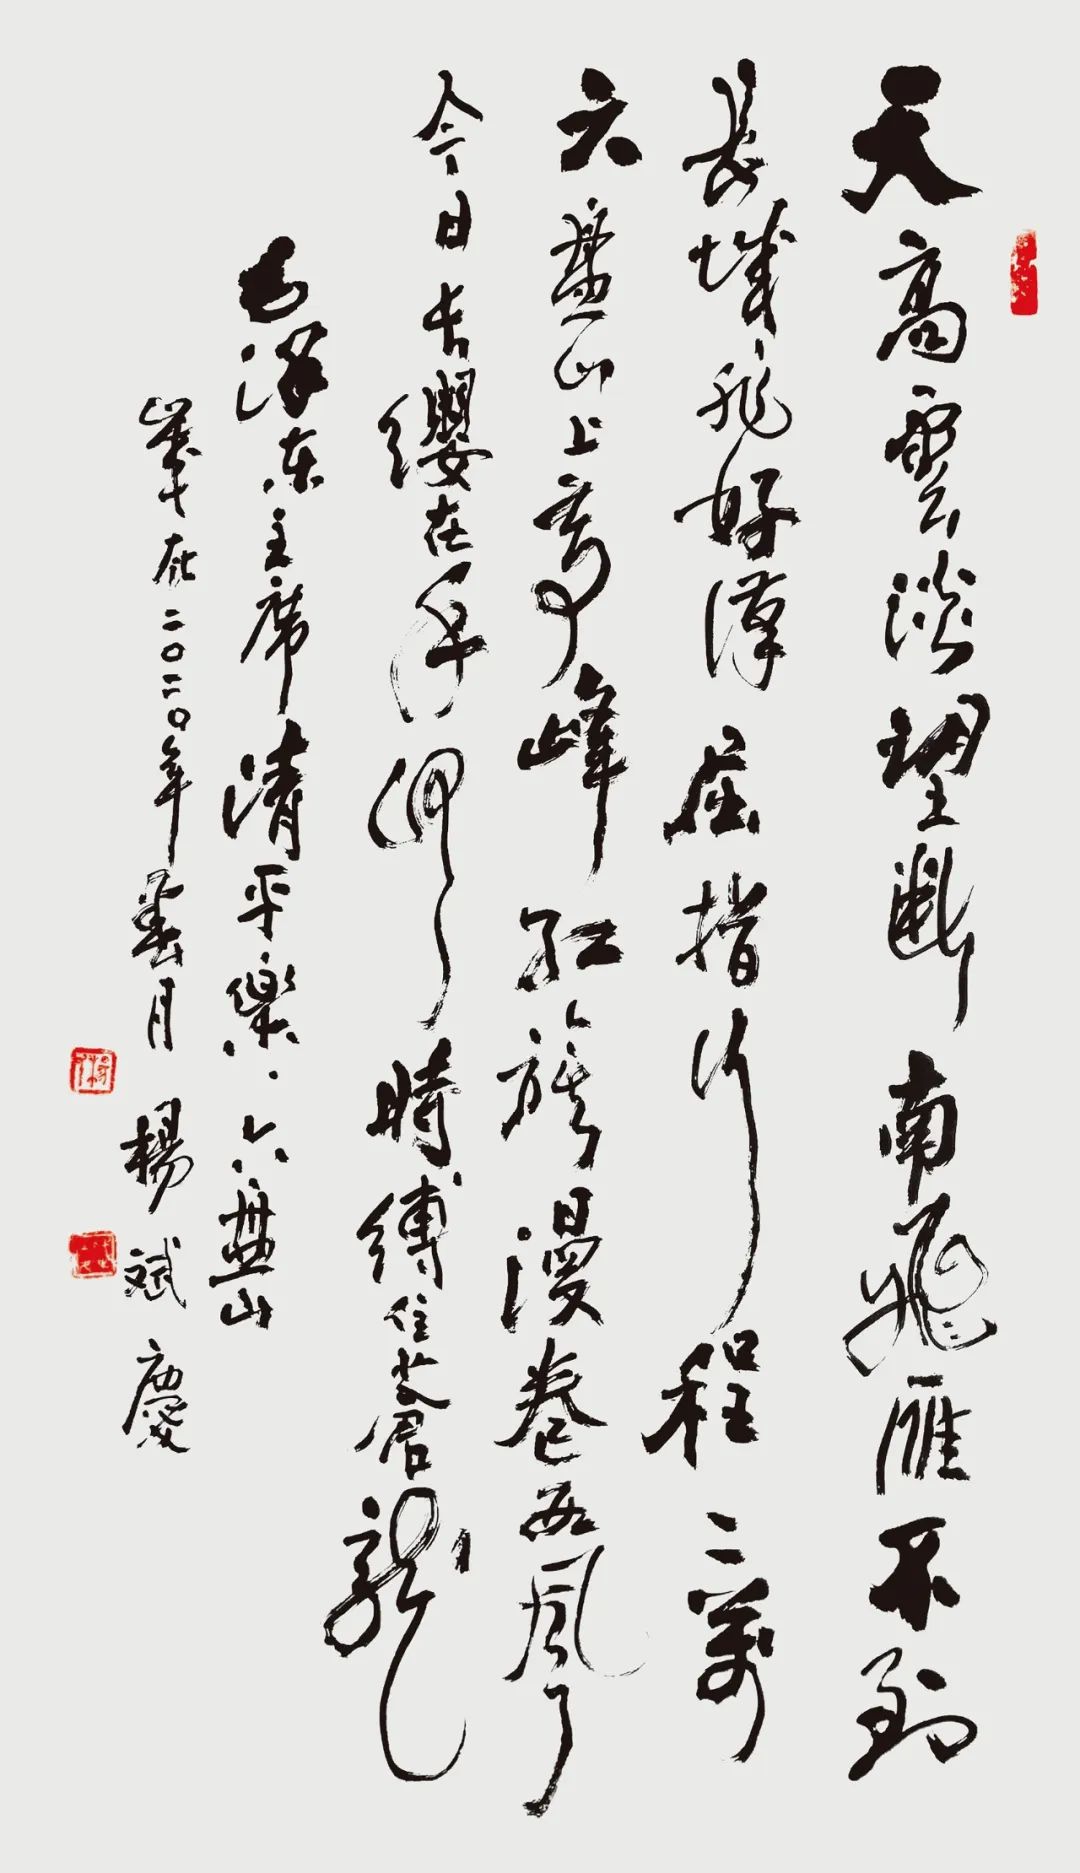 天高雲淡望斷南飛雁不到
長城非好漢屈指行程二萬
六盤山上高峰紅旗漫卷西風
今日長纓在手何時縛住蒼龍
毛澤東主席清平樂、六盤山
歲在二〇二〇年月 楊斌慶